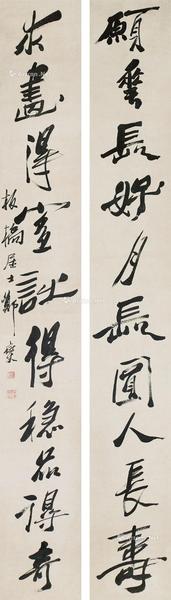 願長好月長圓人長壽
求畫得得穩品得奇
板橋居士鄭燮